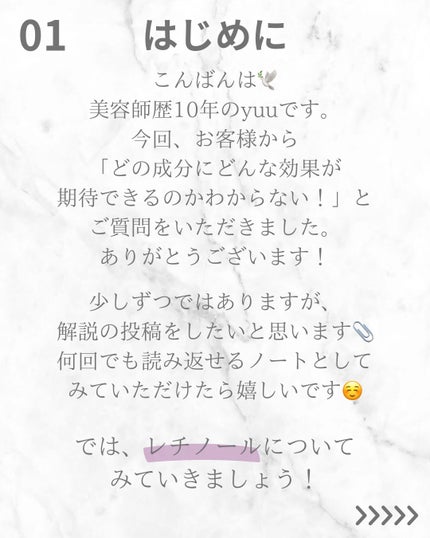 01 はじめに
こんばんは🕊️
美容師歴10年のyuuです。
今回、お客様から
「どの成分にどんな効果が
期待できるのかわからない！」と
ご質問をいただきました。
ありがとうございます！
少しずつではありますが、
解説の投稿をしたいと思います📎
何回でも読み返せるノートとして
みていただけたら嬉しいです☺️
では、レチノールについて
みていきましょう！